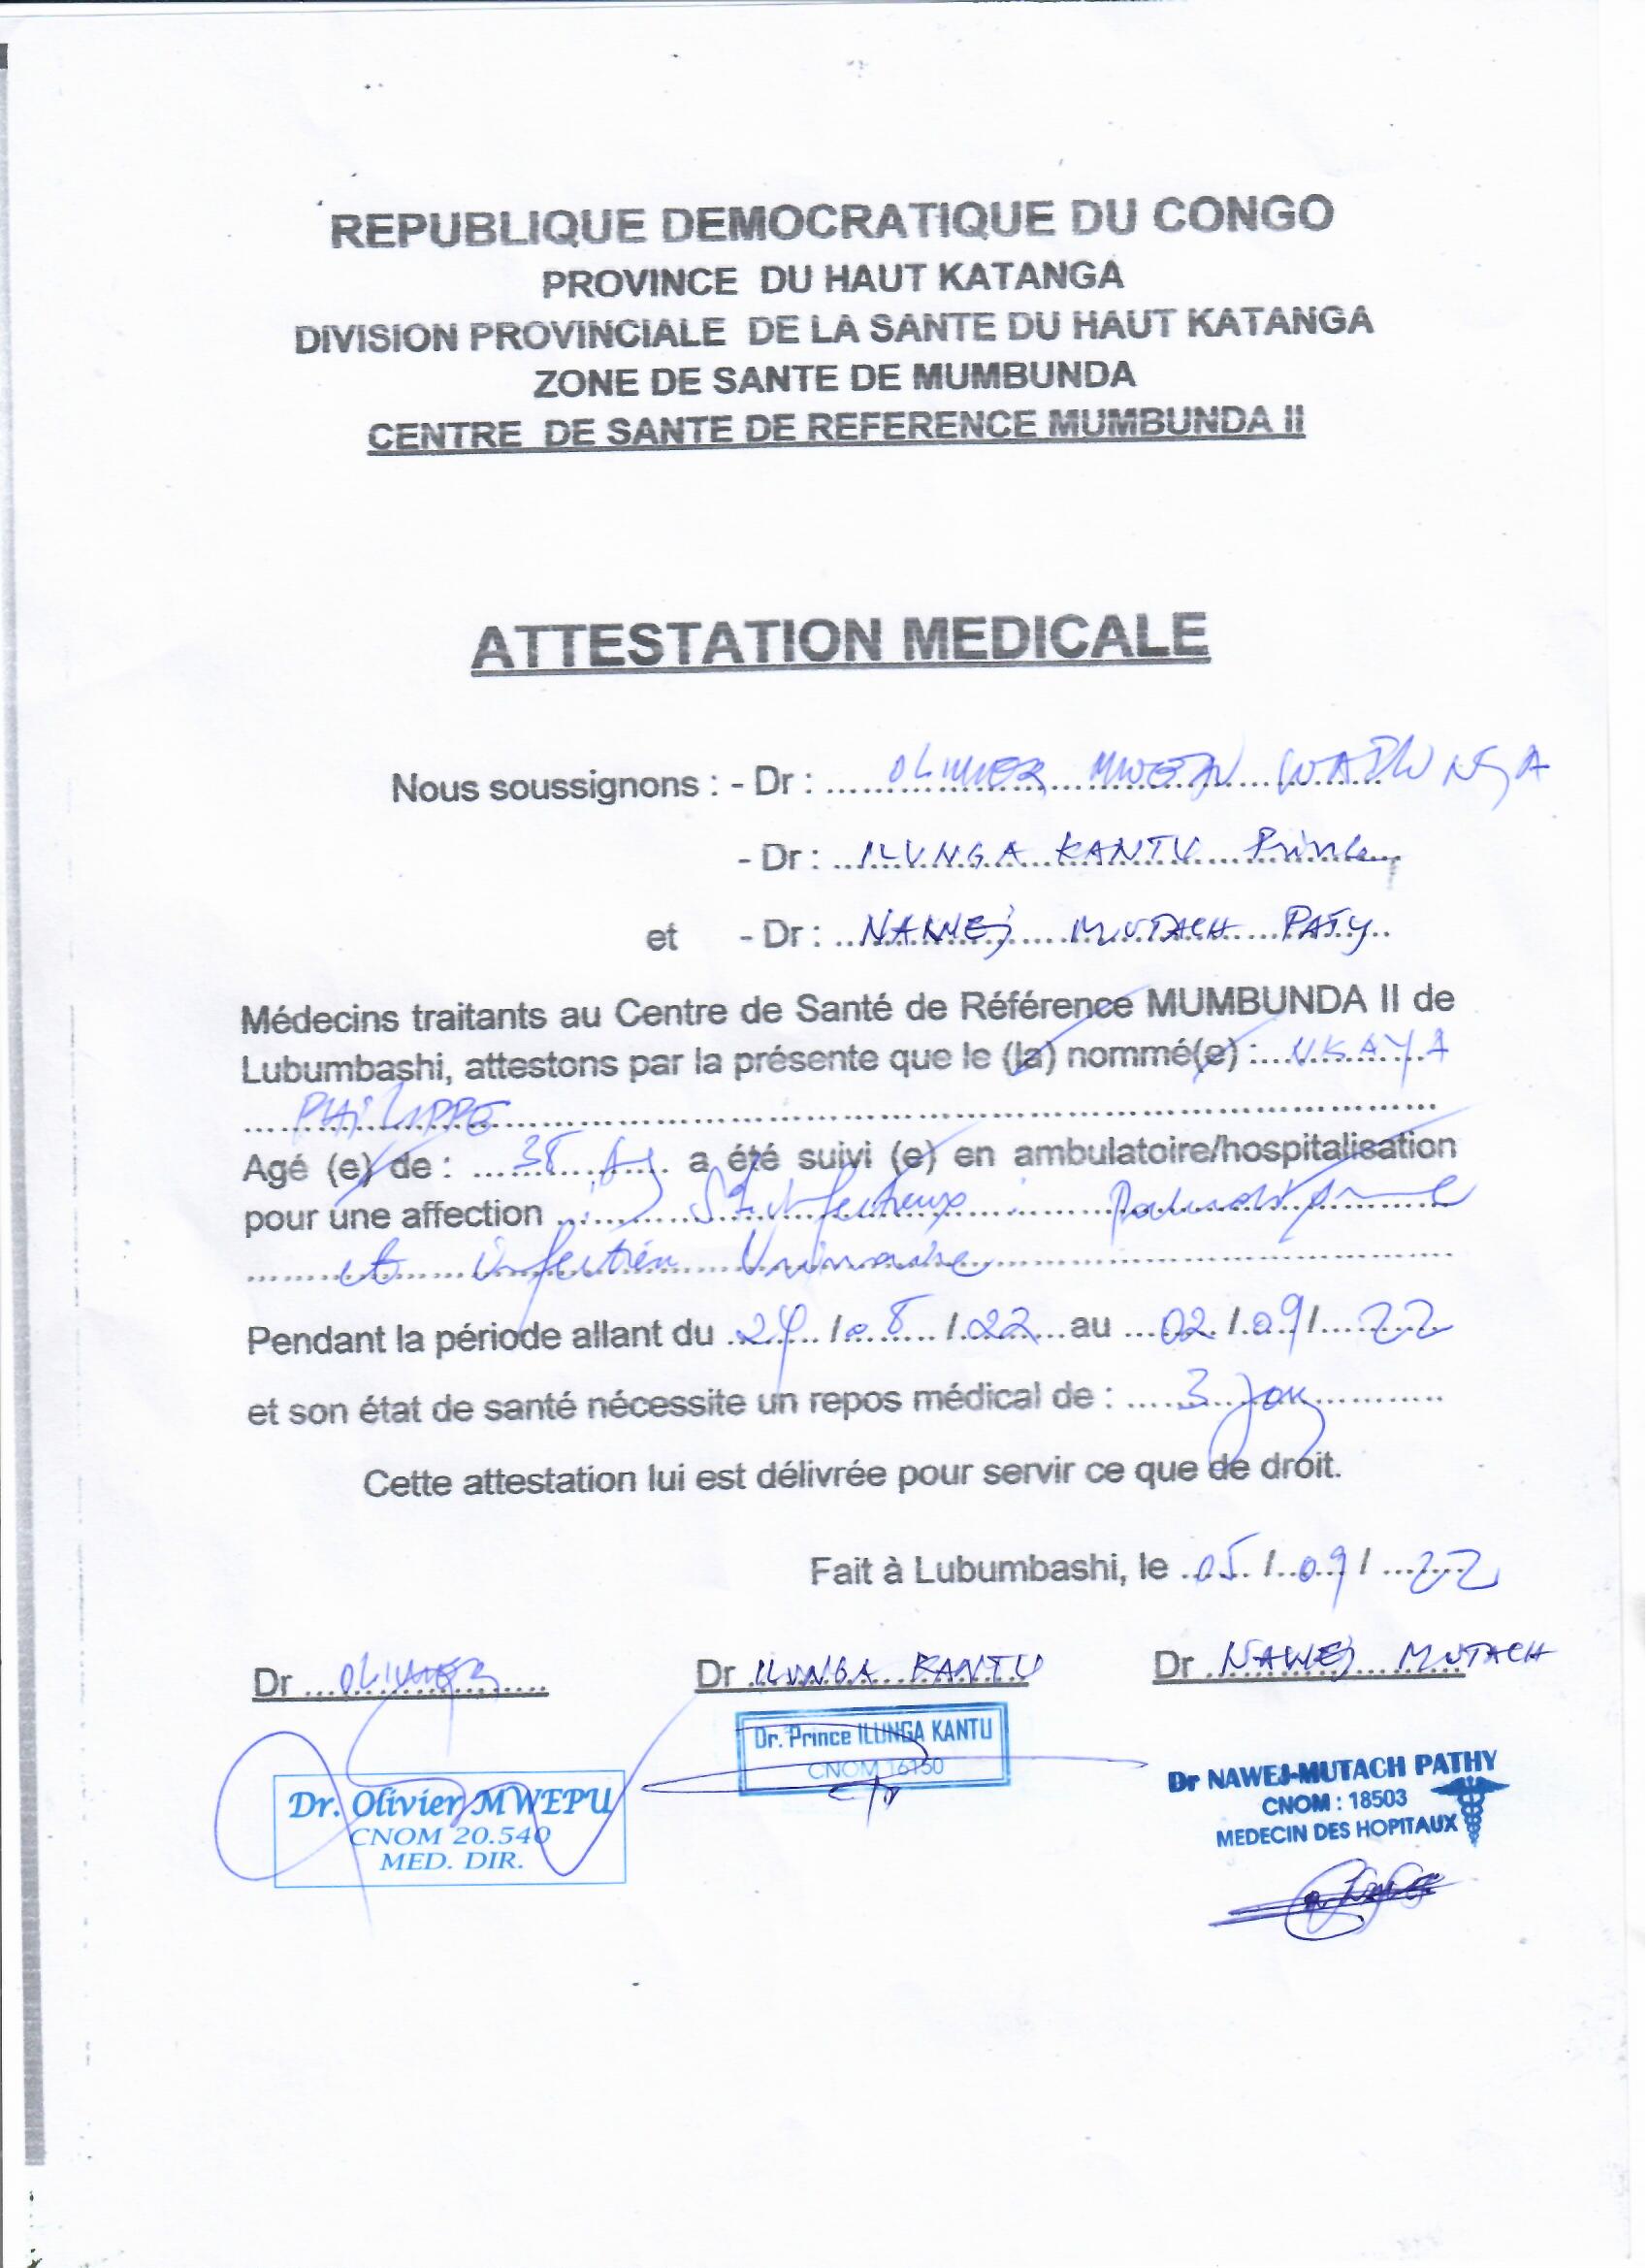 REPUBLIQUE DEMOCRATIQUE DU CONGO
PROVINCE DU HAUT KATANGA
DIVISION PROVINCIALE DE LA SANTE DU HAUT KATANGA
ZONE DE SANTE DE MUMBUNDA
CENTRE DE SANTE DE REFERENCE MUMBUNDA II
ATTESTATION MEDICALE
Nous soussignons : - Dr : OLIVIER
- Dr : ILUNGA KANTU Prince
et - Dr : NAWEJ MUTACH PATY
Médecins traitants au Centre de Santé de Référence MUMBUNDA II de
Lubumbashi, attestons par la présente que le (la) nommé(e) :
PHILIPPE
Agé (e) de : 38 a été suivi (e) en ambulatoire/hospitalisation
pour une affection
et infection Urinaire
Pendant la période allant du 24 / 08 / 22 au 02 / 09 / 22
et son état de santé nécessite un repos médical de : 3 jours
Cette attestation lui est délivrée pour servir ce que de droit.
Fait à Lubumbashi, le 05 / 09 / 22
Dr OLIVIER Dr ILUNGA KANTU Dr NAWEJ MUTACH
Dr. Prince ILUNGA KANTU
CNOM 16150
Dr NAWEJ-MUTACH PATHY
CNOM : 18503
MEDECIN DES HOPITAUX
Dr. Olivier MWEPU
CNOM 20.540
MED. DIR.